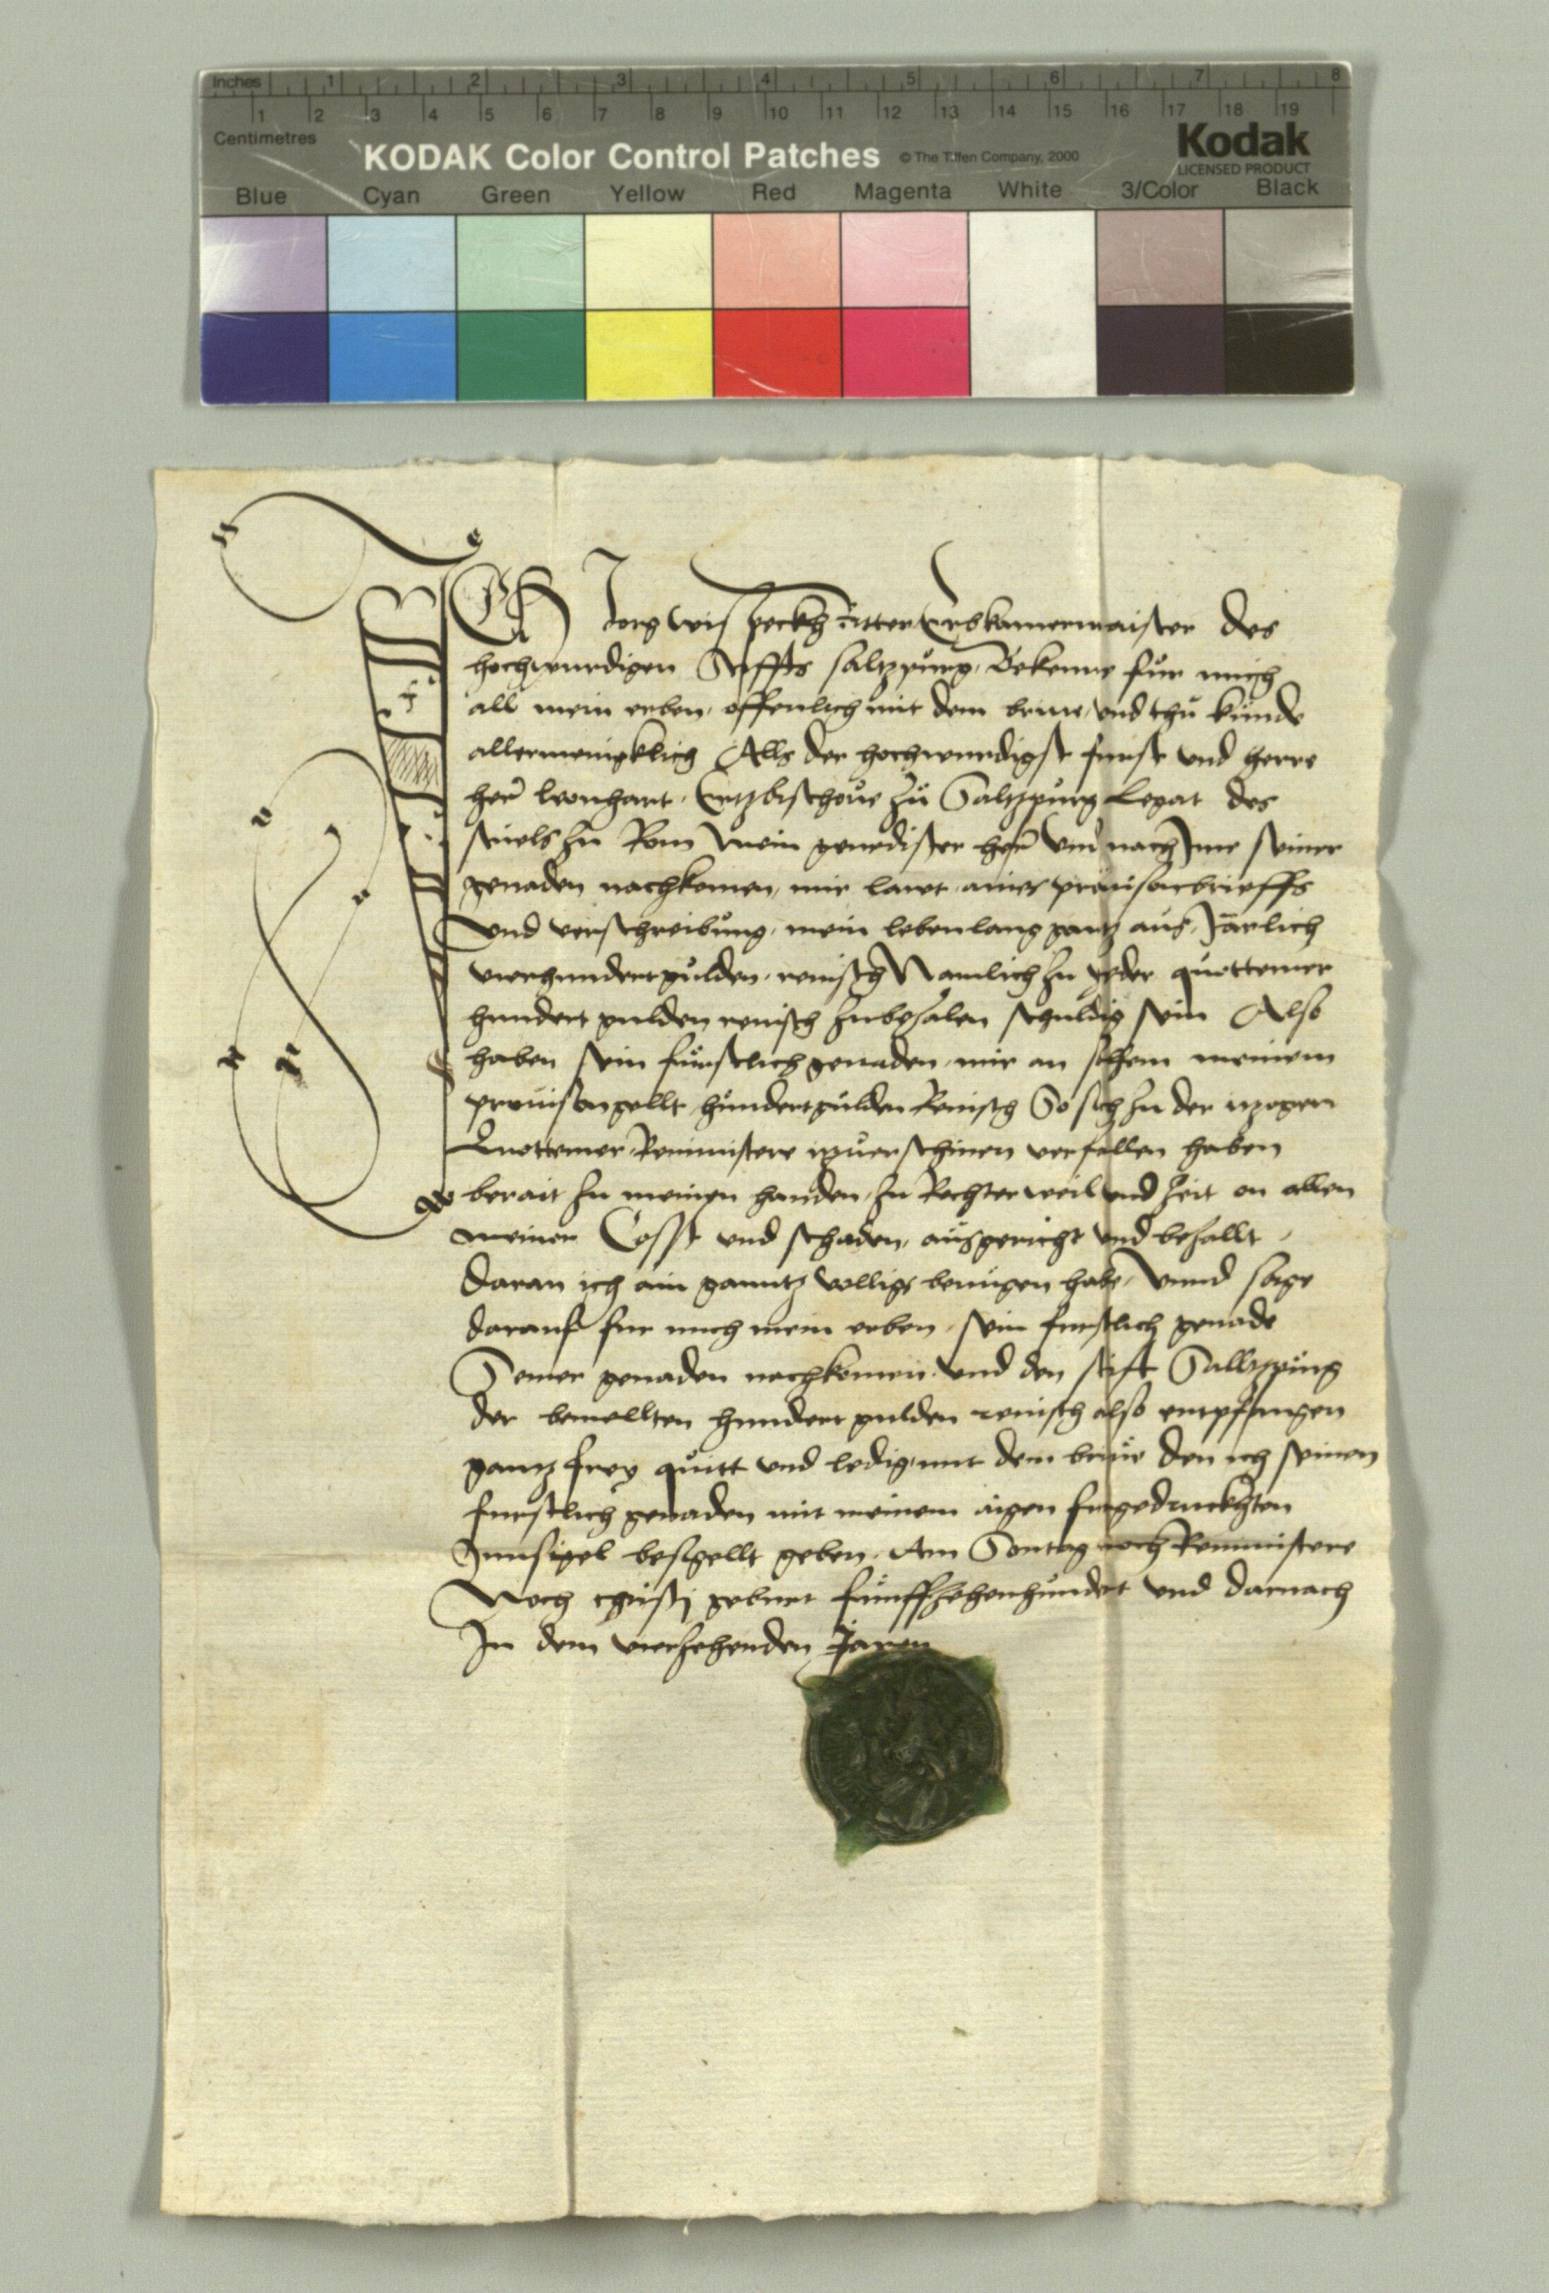 Inches 1 2 3 4 5 6 7 8
1 2 3 4 5 6 7 8 9 10 11 12 13 14 15 16 17 18 19
Centimetres
KODAK Color Control Patches © The Tiffen Company, 2000 Kodak
LICENSED PRODUCT
Blue Cyan Green Yellow Red Magenta White 3/Color Black
ICH Jorg wispeckh ritter Erbkamermaister des
hochwurdigen Stiffts saltzpurg, Bekenne für mich
all mein erben, offenlich mit dem brive, und thu kunde
allermenigklich Alls der hochwurdigst furst und herre
her leonhart, Ertzbischove zu Saltzpurg Legat des
stuels zu Rom Mein genedister her Und nach Ime seiner
genaden nachkomen, mir lawt aines provisonbrieffs
Und verschreibung, mein lebenlang gantz aus, Järlich
vierhundert gulden, reinisch Namlich zu yeder quottemer
hundert gulden reinisch zubezalen schuldig sein Also
haben sein fürstlich genaden, mir an solhem meinem
provison gellt hundert gulden Reinisch So sich zu der yzogen
Quottemer, Reministere yzverschinen verfallen haben
berait zu meinen handen, zu Rechter weil und zeit on allen
meinen Cosst und schaden, ausgericht und bezallt,
Daran ich ain ganntz vollige benügen habe, Unnd sage
darauf fur mich mein erben, sein furstlich genade
Seiner genaden nachkomen, und den stift Salltzpurg
der bemellten hundert gulden reinisch also empfangen
gantz frey quitt und ledig, mit dem brive den ich seinen
furstlich genaden mit meinem aigen furgedruckhten
Innsigel besigellt geben, Am Sontag nach Reministere
Noch christj geburt fünffzehenhundert und darnach
In dem vierzehenden Jaren